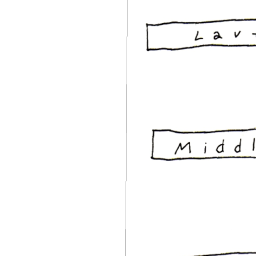 Lav-
Middl